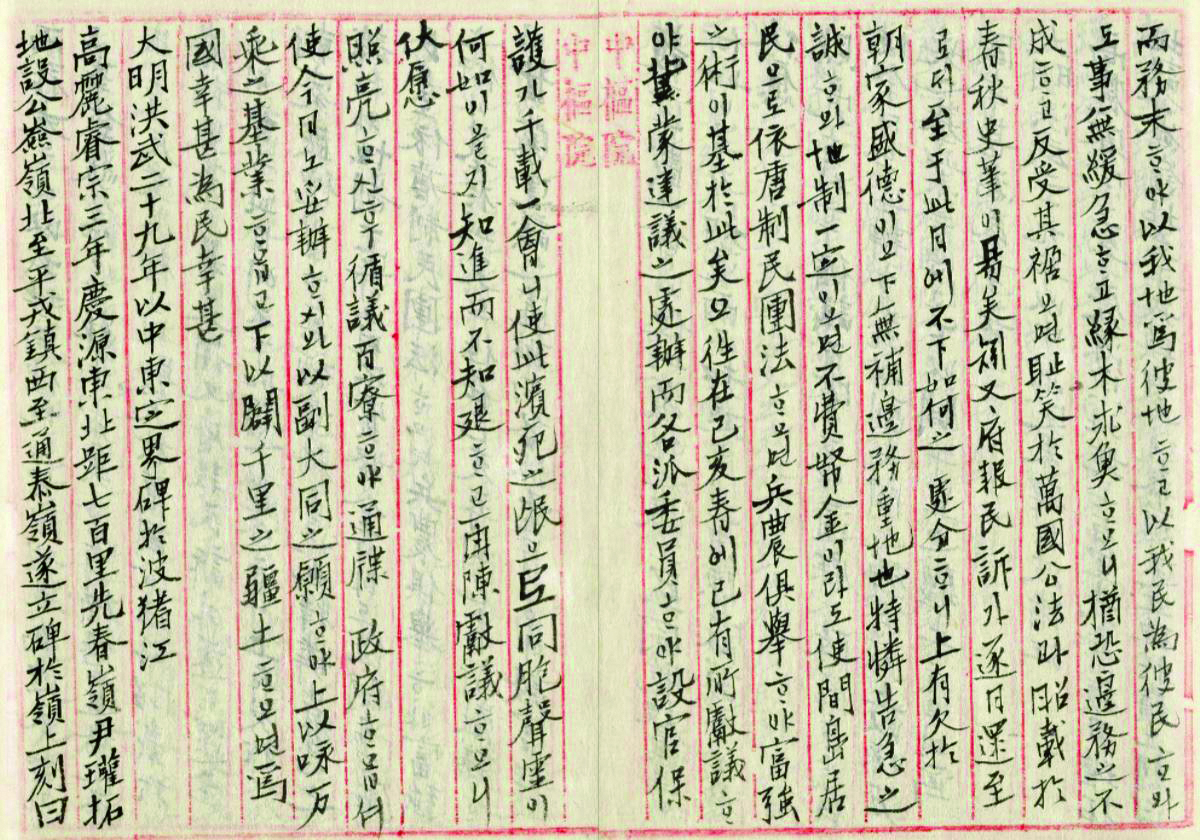 而務末ᄒᆞ야以我地爲彼地ᄒᆞ고以我民為彼民ᄒᆞ와
도事無緩急ᄒᆞ고緣木求魚ᄒᆞ오니猶恐邊務之不
成ᄒᆞ고反受其오면耻笑於萬國公法과昭載於
春秋史筆이易矣又府報民訴가逐日還至
로ᄃᆡ至于此日에不下如何之 處分ᄒᆞ니上有欠於
朝家盛德이오下無補邊務重地也特憐告急之
誠ᄒᆞ와地制一定이오면不費幣金이라도使間島居
民으로依唐制民團法ᄒᆞ오면兵農俱擧ᄒᆞ야富強
之術이基於此矣오往在己亥春에已有所獻議ᄒᆞ
야冀蒙達議之處辦而各派委員ᄒᆞ야設官保
中樞院
中樞院
護가千載一會니使此濱死之氓으로同胞聲靈이
何如이올지知進而不知退ᄒᆞ고陳獻議ᄒᆞ오니
伏愿
照亮ᄒᆞ신후循議百寮ᄒᆞ야通牒 政府ᄒᆞ
使今日노妥辦ᄒᆞ시와以副大同之願ᄒᆞ야上以万
乘之基業ᄒᆞ고 下以闢千里之疆土ᄒᆞ오면爲
國幸甚為民幸甚
大明洪武二十九年以中東定界碑於波猪江
高麗睿宗三年慶源東北距七百里先春嶺尹瓘拓
地設公嶮嶺北至平戎鎮西至通泰嶺遂立碑於嶺上刻曰